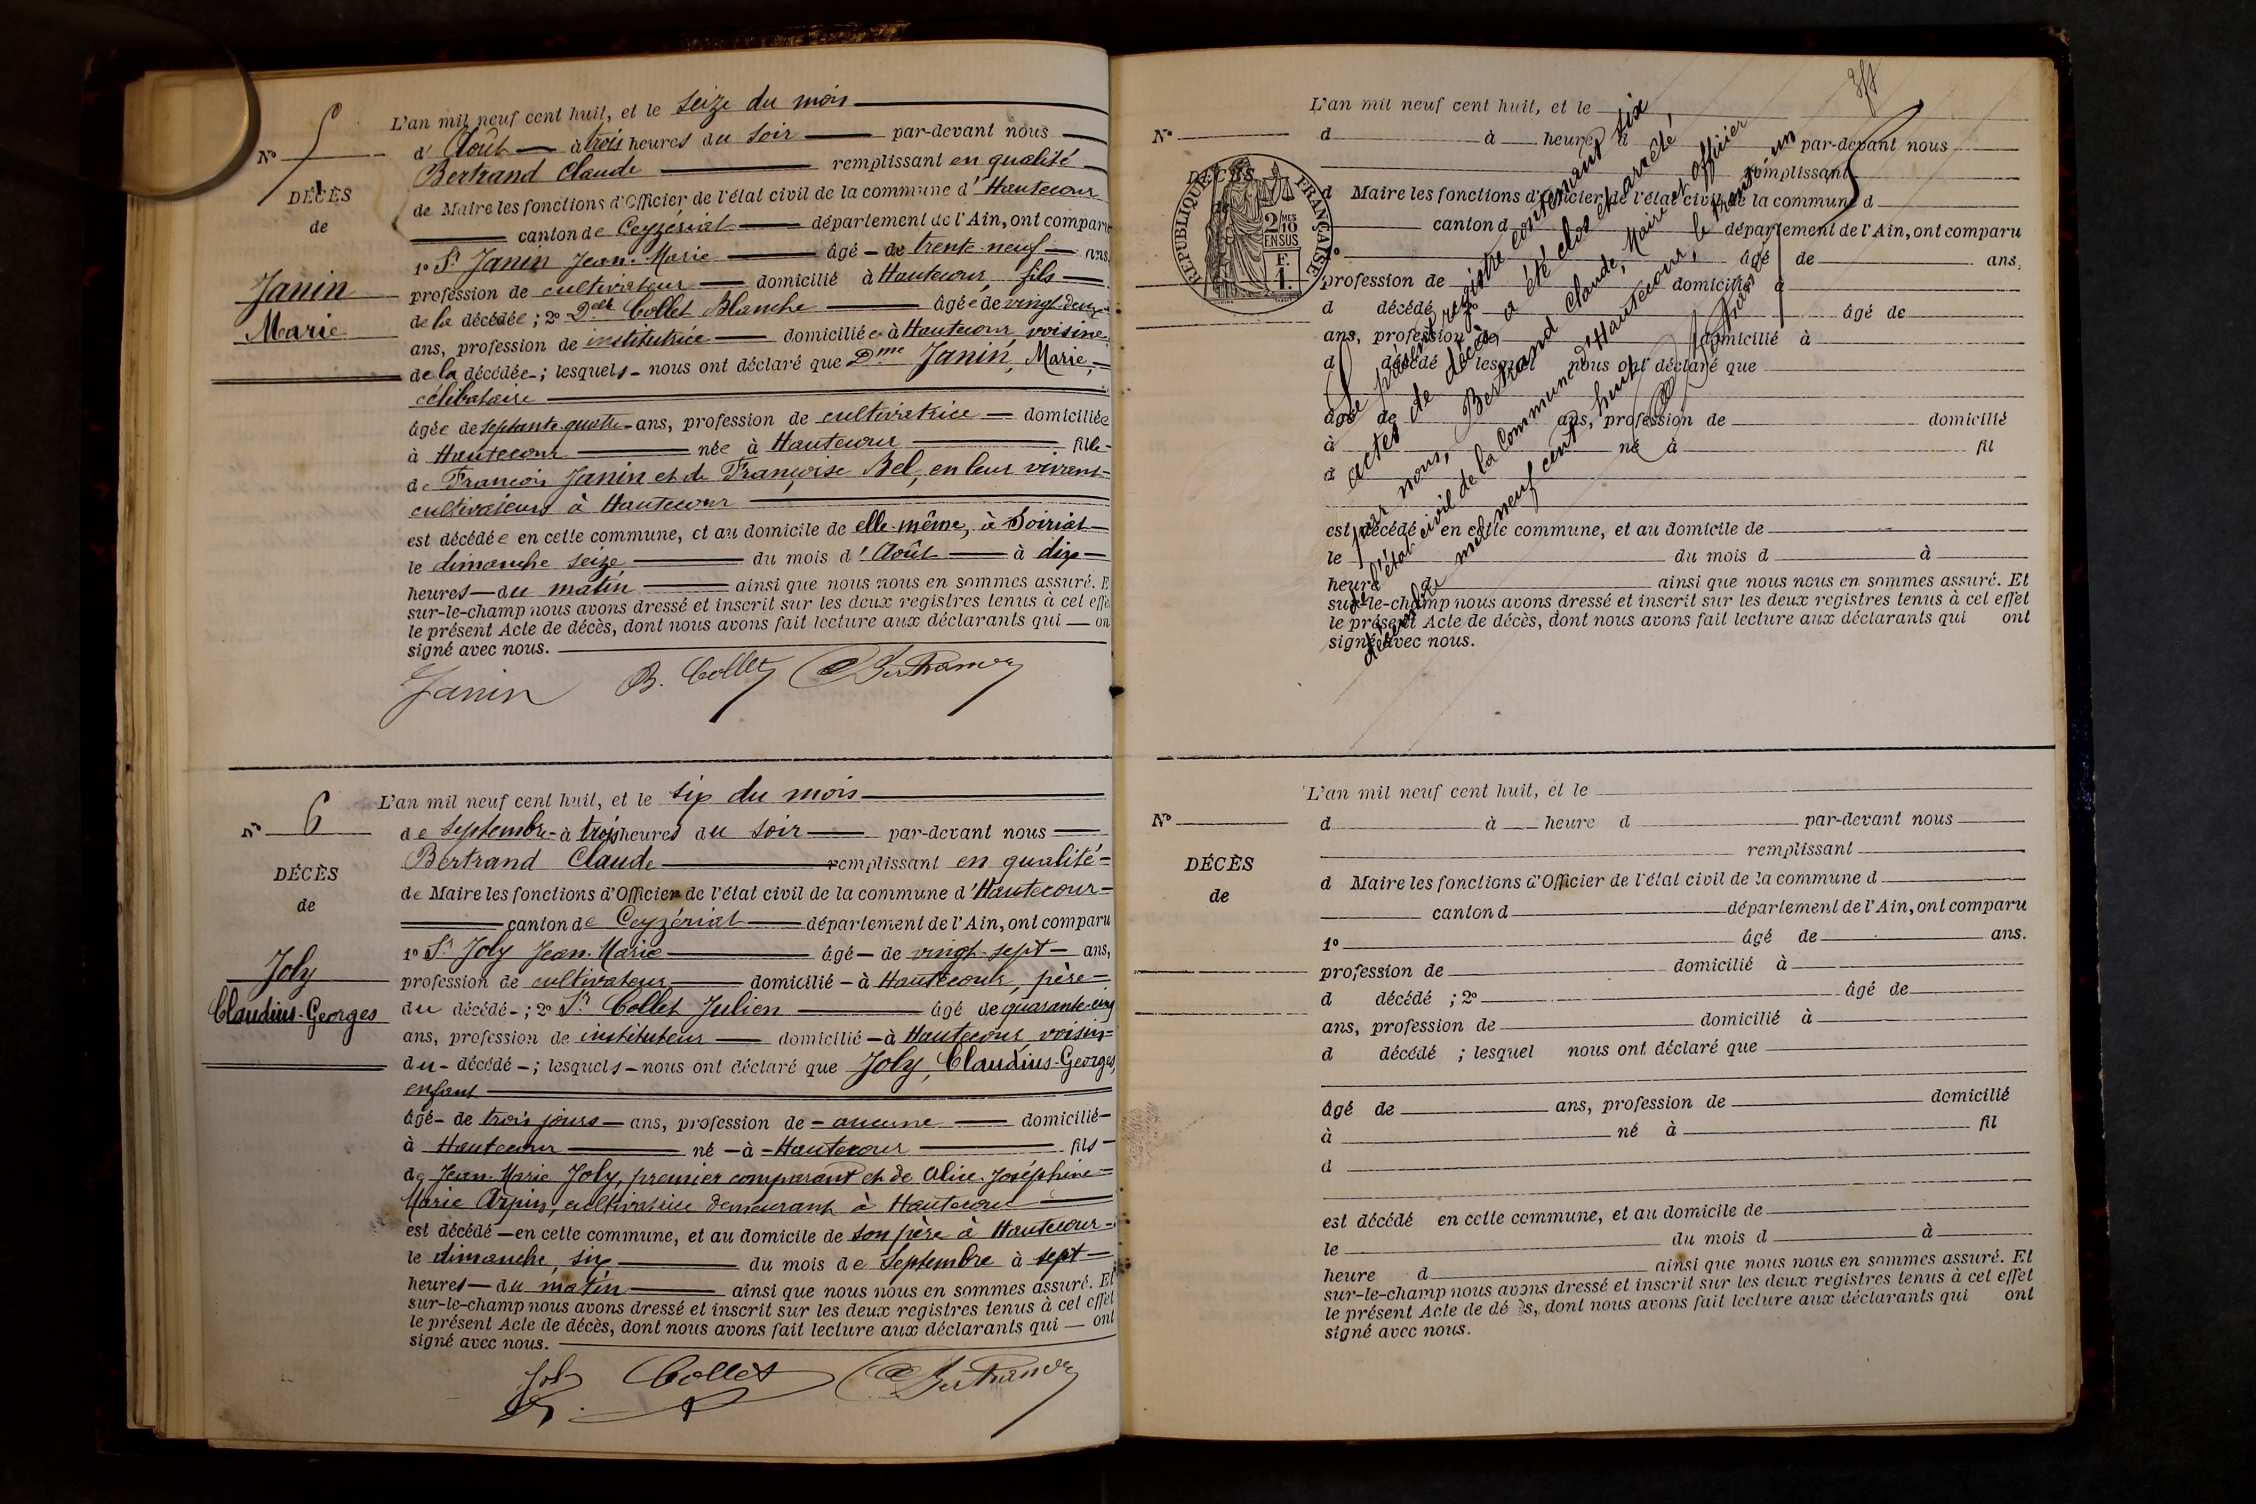 N° 5
DÉCÈS
de
Janin
Marie
L'an mil neuf cent huit, et le seize du mois
d'Août à trois heures du soir par-devant nous
Bertrand Claude remplissant en qualité
de Maire les fonctions d'Officier de l'état civil de la commune d'Hautecour
canton de Ceyzériat département de l'Ain, ont comparu
1° Sr Janin Jean-Marie âgé de trente-neuf ans,
profession de cultivateur domicilié à Hautecour, fils
de la décédée ; 2° Delle Collet Blanche âgée de vingt-deux
ans, profession de institutrice domiciliée à Hautecour, voisine
de la décédée ; lesquels nous ont déclaré que Dme Janin, Marie,
célibataire
âgée de septante quatre ans, profession de cultivatrice domiciliée
à Hautecour née à Hautecour fille
de François Janin et de Françoise Bel, en leur vivant
cultivateurs à Hautecour
est décédée en cette commune, et au domicile de elle-même, à Soiriat
le dimanche seize du mois d'Août à dix
heures du matin ainsi que nous nous en sommes assuré. E
sur-le-champ nous avons dressé et inscrit sur les deux registres tenus à cet effe
le présent Acte de décès, dont nous avons fait lecture aux déclarants qui on
signé avec nous.
Janin B. Collet C Bertrand
N° 6
DÉCÈS
de
Joly
Claudius-Georges
L'an mil neuf cent huit, et le six du mois
de Septembre à trois heures du soir par-devant nous
Bertrand Claude remplissant en qualité
de Maire les fonctions d'Officier de l'état civil de la commune d'Hautecour
canton de Ceyzériat département de l'Ain, ont comparu
1° Sr Joly Jean-Marie âgé de vingt-sept ans,
profession de cultivateur domicilié à Hautecour, père
du décédé ; 2° Sr Collet Julien âgé de quarante-cinq
ans, profession de instituteur domicilié à Hautecour, voisin
du décédé ; lesquels nous ont déclaré que Joly, Claudius-Georges,
enfant
âgé de trois jours ans, profession de aucune domicilié
à Hautecour né à Hautecour fils
de Jean-Marie Joly, premier comparant et de Alice Joséphine
Marie Arpin, cultivatrice demeurant à Hautecour
est décédé en cette commune, et au domicile de son père à Hautecour
le dimanche, six du mois de Septembre à sept
heures du matin ainsi que nous nous en sommes assuré. Et
sur-le-champ nous avons dressé et inscrit sur les deux registres tenus à cet effet
le présent Acte de décès, dont nous avons fait lecture aux déclarants qui ont
signé avec nous.
Joly Collet C Bertrand
N°
DÉCÈS
RÉPUBLIQUE FRANÇAISE
2/10 MES
EN SUS
F.
1.
L'an mil neuf cent huit, et le
d à heure d par-devant nous
remplissant
d Maire les fonctions d'Officier de l'état civil de la commune d
canton d département de l'Ain, ont comparu
1° âgé de ans,
profession de domicilié à
d décédé ; 2° âgé de
ans, profession de domicilié à
d décédé ; lesquel nous ont déclaré que
âgé de ans, profession de domicilié
à né à fil
d
est décédé en cette commune, et au domicile de
le du mois d à
heure d ainsi que nous nous en sommes assuré. Et
sur-le-champ nous avons dressé et inscrit sur les deux registres tenus à cet effet
le présent Acte de décès, dont nous avons fait lecture aux déclarants qui ont
signé avec nous.
Le présent registre contenant six
actes de décès, a été clos et arrêté
par nous, Bertrand Claude, Maire et officier
de l'état civil de la Commune d'Hautecour, le trente-un
décembre mil neuf cent huit
C Bertrand
N°
DÉCÈS
de
L'an mil neuf cent huit, et le
d à heure d par-devant nous
remplissant
d Maire les fonctions d'Officier de l'état civil de la commune d
canton d département de l'Ain, ont comparu
1° âgé de ans.
profession de domicilié à
d décédé ; 2° âgé de
ans, profession de domicilié à
d décédé ; lesquel nous ont déclaré que
âgé de ans, profession de domicilié
à né à fil
d
est décédé en cette commune, et au domicile de
le du mois d à
heure d ainsi que nous nous en sommes assuré. Et
sur-le-champ nous avons dressé et inscrit sur les deux registres tenus à cet effet
le présent Acte de dé ès, dont nous avons fait lecture aux déclarants qui ont
signé avec nous.